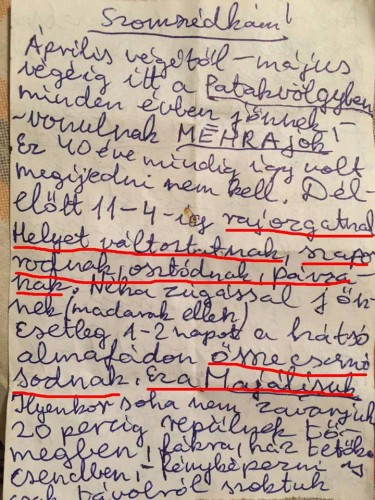 Szomszédkám!
Április végétől - május
végéig itt a Patakvölgyben
minden évben jönnek -
- vonulnak MÉHRAJOK!
Ez 40 éve mindig így volt
megijedni nem kell. Dél-
előtt 11-4-ig rajzgatnak
Helyet változtatnak, szapo
rodnak, osztódnak, párza-
nak. Néha zúgással jön-
nek (madarak ellen)
Esetleg 1-2 napot a hátsó
almafádon össze csomó
sodnak. Ez a Majálisuk
Ilyenkor soha nem zavarjuk
20 percig repülnek tö-
megben, fákra, ház tetőkre
csendben, - fényképezni is
csak távolról szoktuk